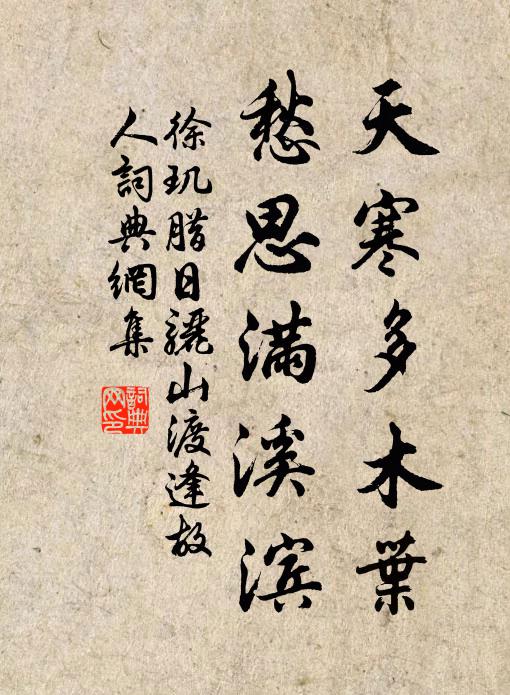 天寒多木葉
愁思满溪滨
徐玑腊日驪山渡逢故
人詞典網集
詞典
网印